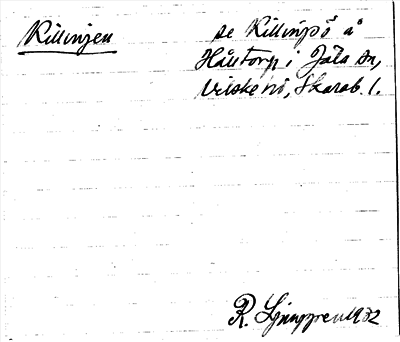 Killingen
se Killingö å
Håutorp i Jäla sn,
Vilske hd, Skarab. l.
R. Ljunggren 1932